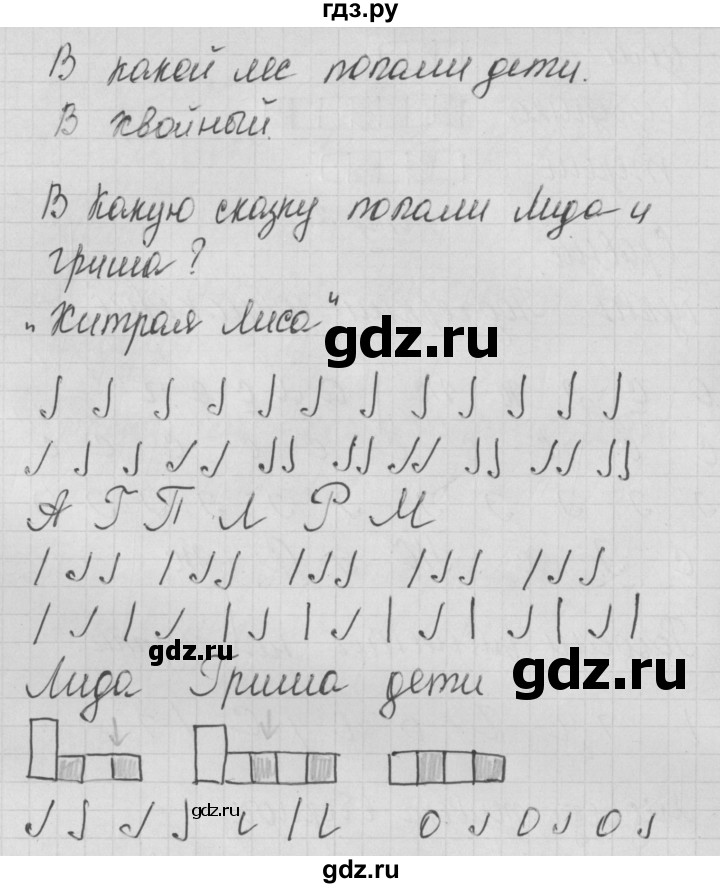 гдз.ру
В какой лес попали дети.
В хвойный.
В какую сказку попали Лида и
Гриша?
„Хитрая Лиса"
gdz.ru
А Г П Л Р М
gdz.ru
gdz.ru
Лида Гриша дети
gdz.ru
gdz.ru